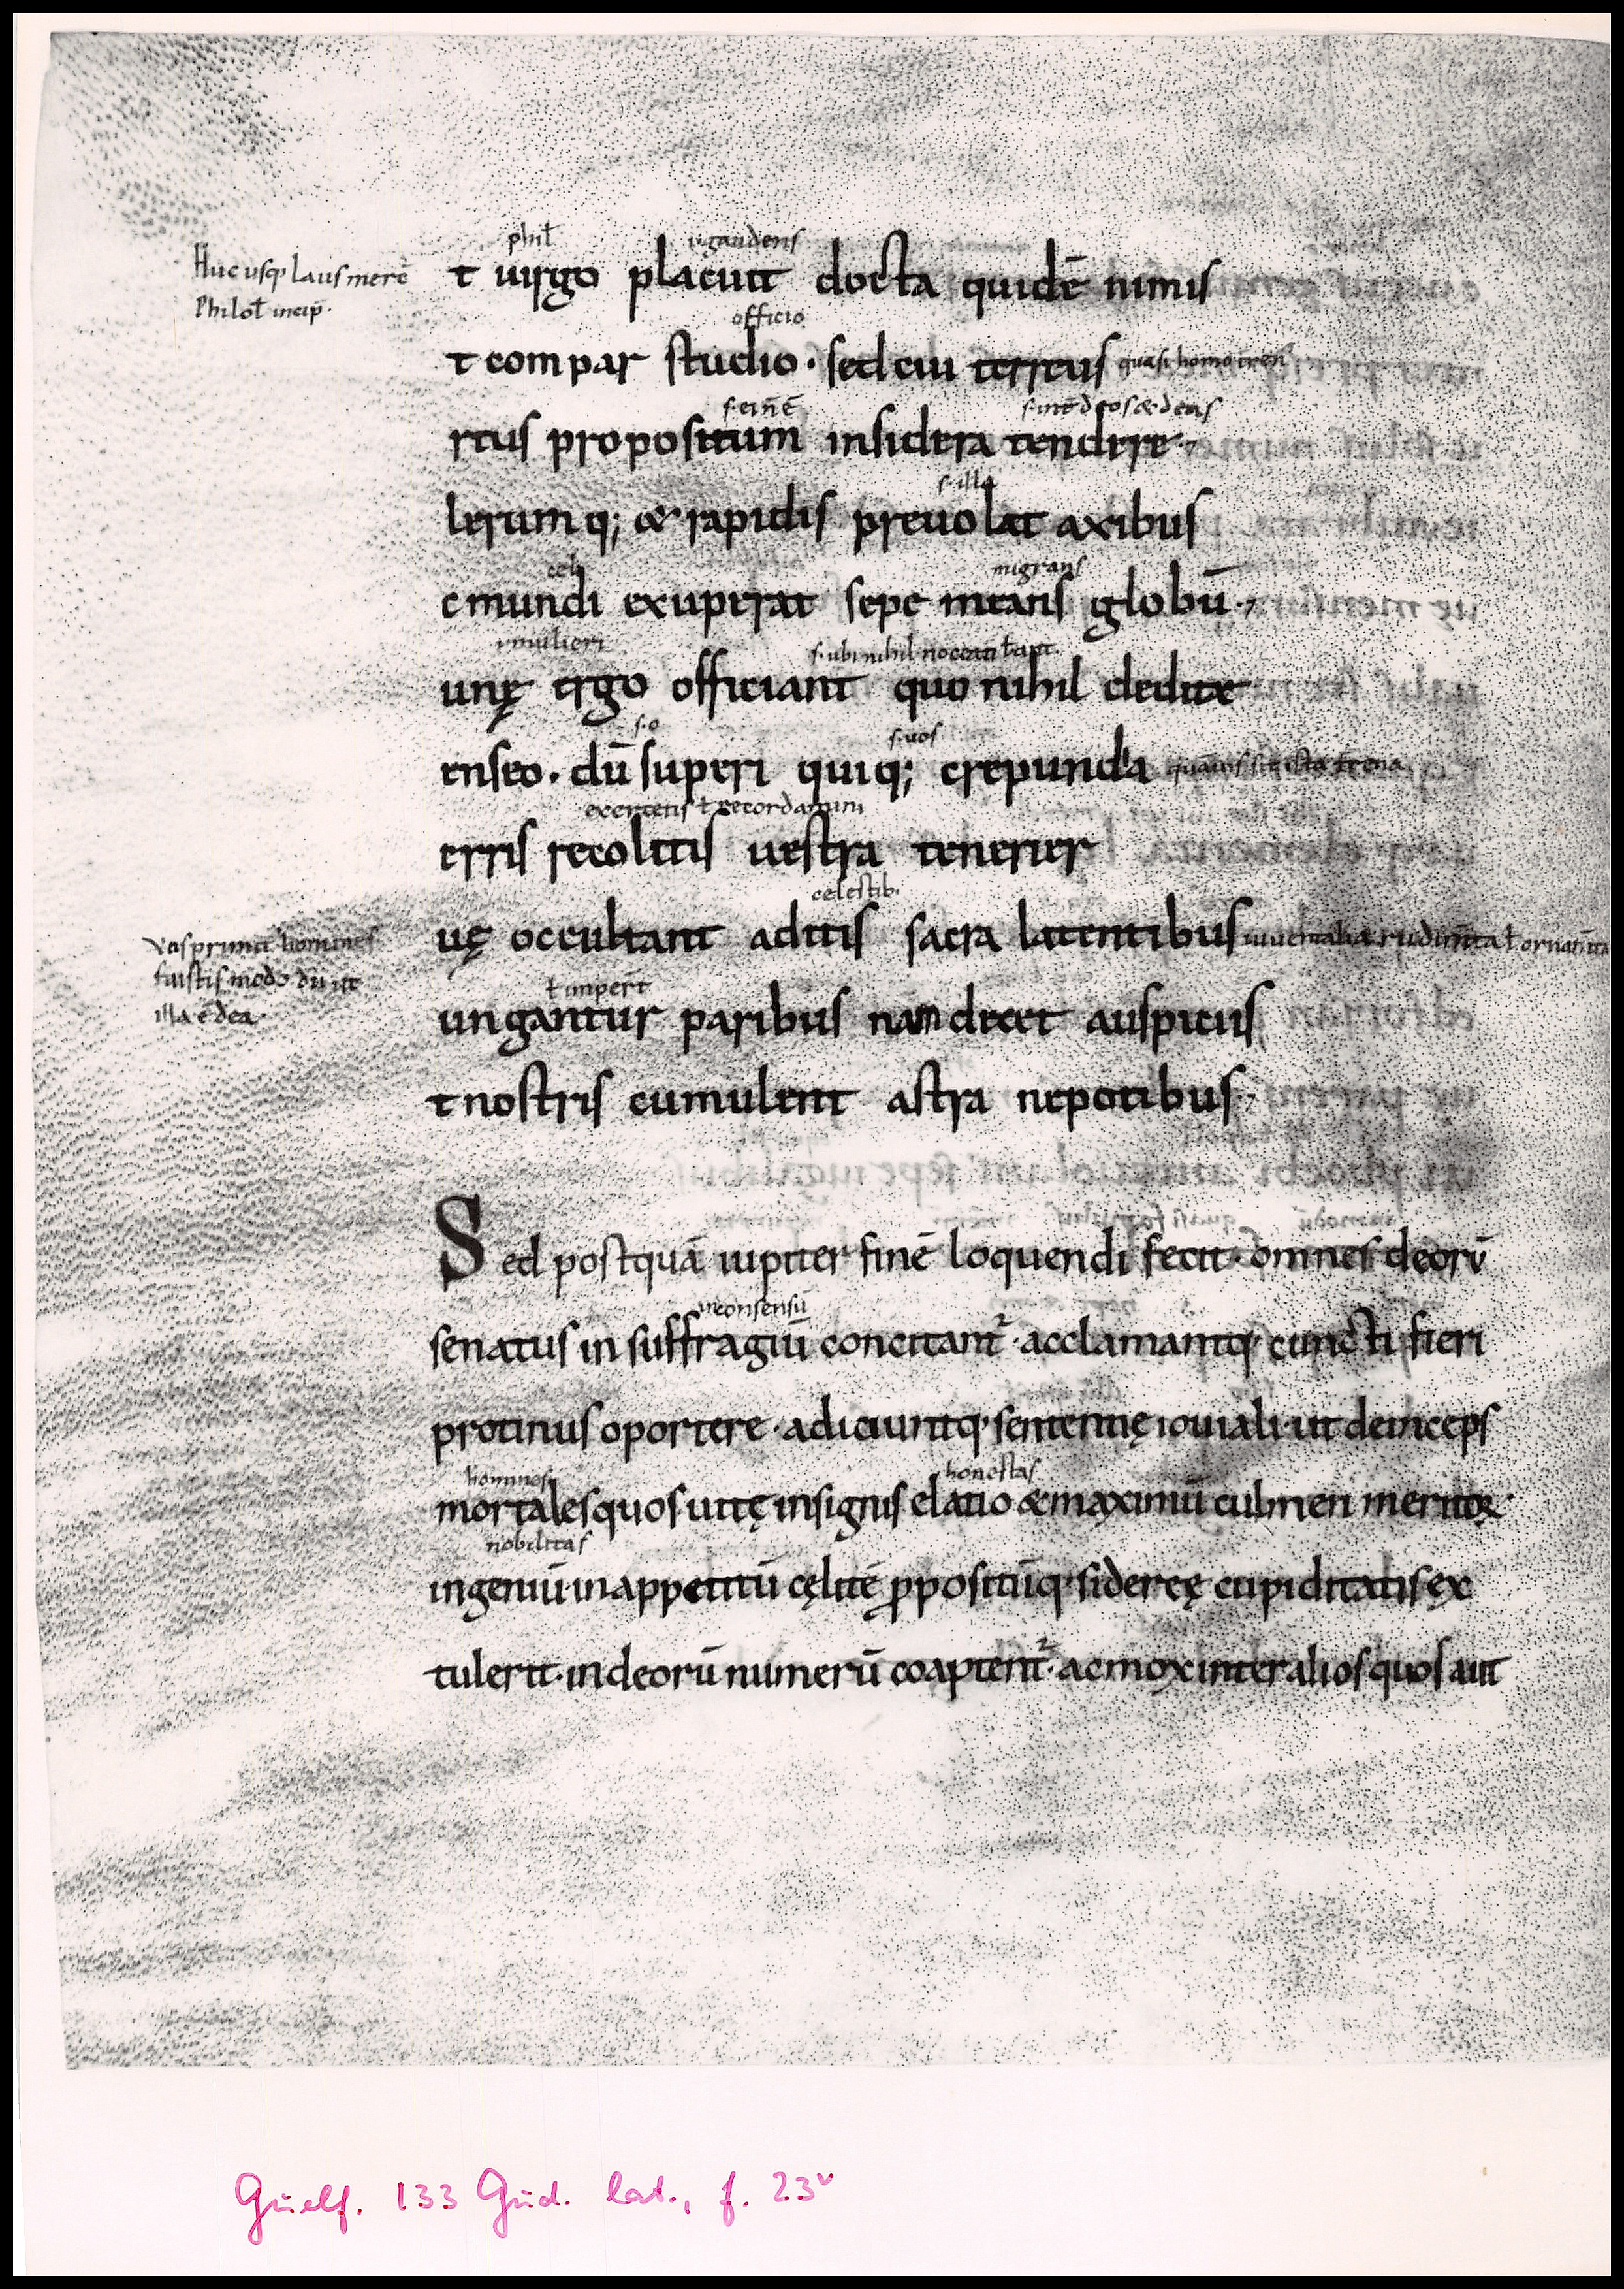 phił .i. gaudens
Huc usq; laus merc̄
Philoł incip̄·
t uirgo placuit docta quidē nimis
officio
t compar studio · sed cui terreus quasi homo
s· ei n̄ ē
rtus propositum insidera tendere·,
s· illa
lerumq; & rapidis preuolat axibus
migrans
c mundi exuperat sepe means globū·,
mulieri s· ubi nihil noceat
unę ergo officiant quo nihil dedite
s· o s· uos
enseo · dū superi quiq; crepundia
ł recordamini
erris recolitis uestra tenerier
celestib·
uę occultant aditis sacra latentibus
homines
fuistis modo dii ut
illa ē dea·
ł impert̄
ungantur paribus nam decet auspiciis
t nostris cumulent astra nepotibus·,
Sed postquā iupiter finē loquendi fecit· omnes deorū
in consensū
senatus in suffragiū concitant̄· acclamantq· cuncti fieri
protinus oportere · adiciuntq· sententię iouiali· ut deinceps
homines honestas
mortales quos uitę insignis elatio & maximū culmen meritoꝝ·
nobilitas
ingeniū· in appetitū cęlitē ꝓpositūq· sidereę cupiditatis ex
tulerit· in deorū numerū coaptent̄· ac mox inter alios quos aut
Guelf. 133 Gud. lat., f. 23ᵛ